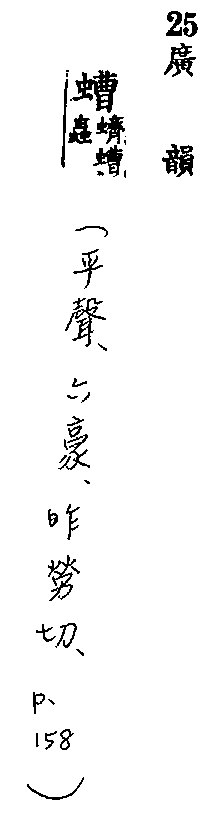 25 廣韻
螬 蠐螬蟲
(平聲、六豪、昨勞切、p、158)